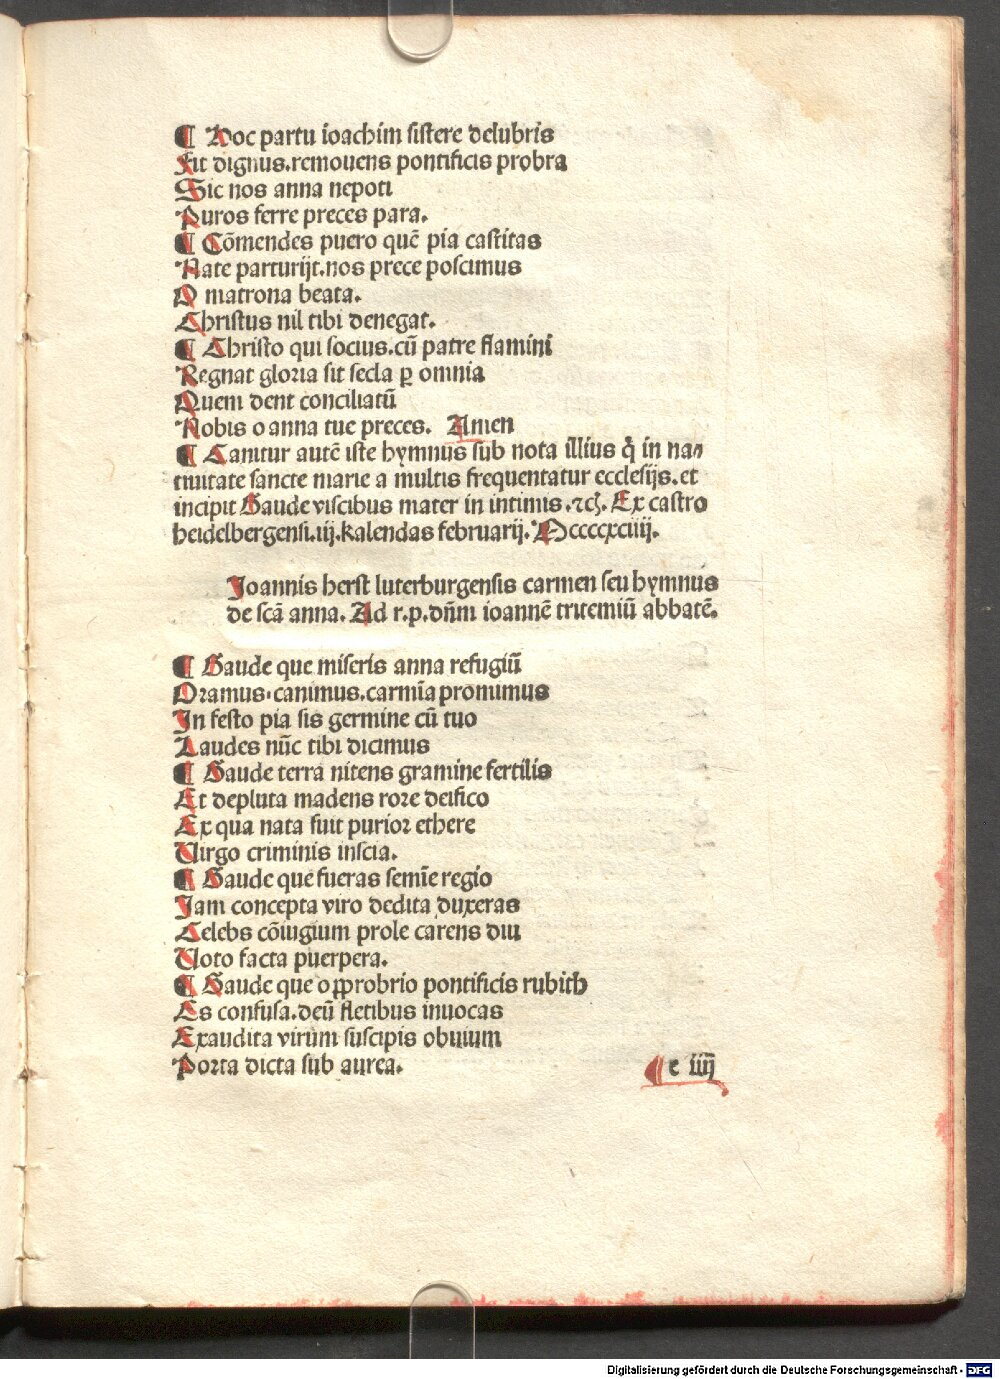 ¶ Hoc partu ioachim sistere delubris
Fit dignus.remouens pontificis probra
Sic nos anna nepoti
Puros ferre preces para.
¶ Cōmendes puero quē pia castitas
Nate parturijt.nos prece poscimus
O matrona beata.
Christus nil tibi denegat.
¶ Christo qui socius.cū patre flamini
Regnat gloria sit secla ꝑ omnia
Quem dent conciliatū
Nobis o anna tue preces. Amen
¶ Canitur autē iste hymnus sub nota illius q̄ in na⸗
tiuitate sancte marie a multis frequentatur ecclesijs.et
incipit Gaude visceribus mater in intimis.⁊cꝭ. Ex castro
heidelbergensi.iij.kalendas februarij.Mccccxciiij.
Joannis herst luterburgensis carmen seu hymnus
de scā anna. Ad r.p.dn̄m ioannē tritemiū abbatē.
¶ Gaude que miseris anna refugiū
Oramus.canimus.carmīa promimus
In festo pia sis germine cū tuo
Laudes nūc tibi dicimus
¶ Gaude terra nitens gramine fertilis
Et depluta madens rore deifico
Ex qua nata fuit purior ethere
Virgo criminis inscia.
¶ Gaude que fueras semīe regio
Jam concepta viro dedita duxeras
Celebs cōiugium prole carens diu
Voto facta puerpera.
¶ Gaude que oꝓprobrio pontificis rubith
Es confusa.deū fletibus inuocas
Exaudita virum suscipis obuium
Porta dicta sub aurea.
e iiij
Digitalisierung gefördert durch die Deutsche Forschungsgemeinschaft - DFG